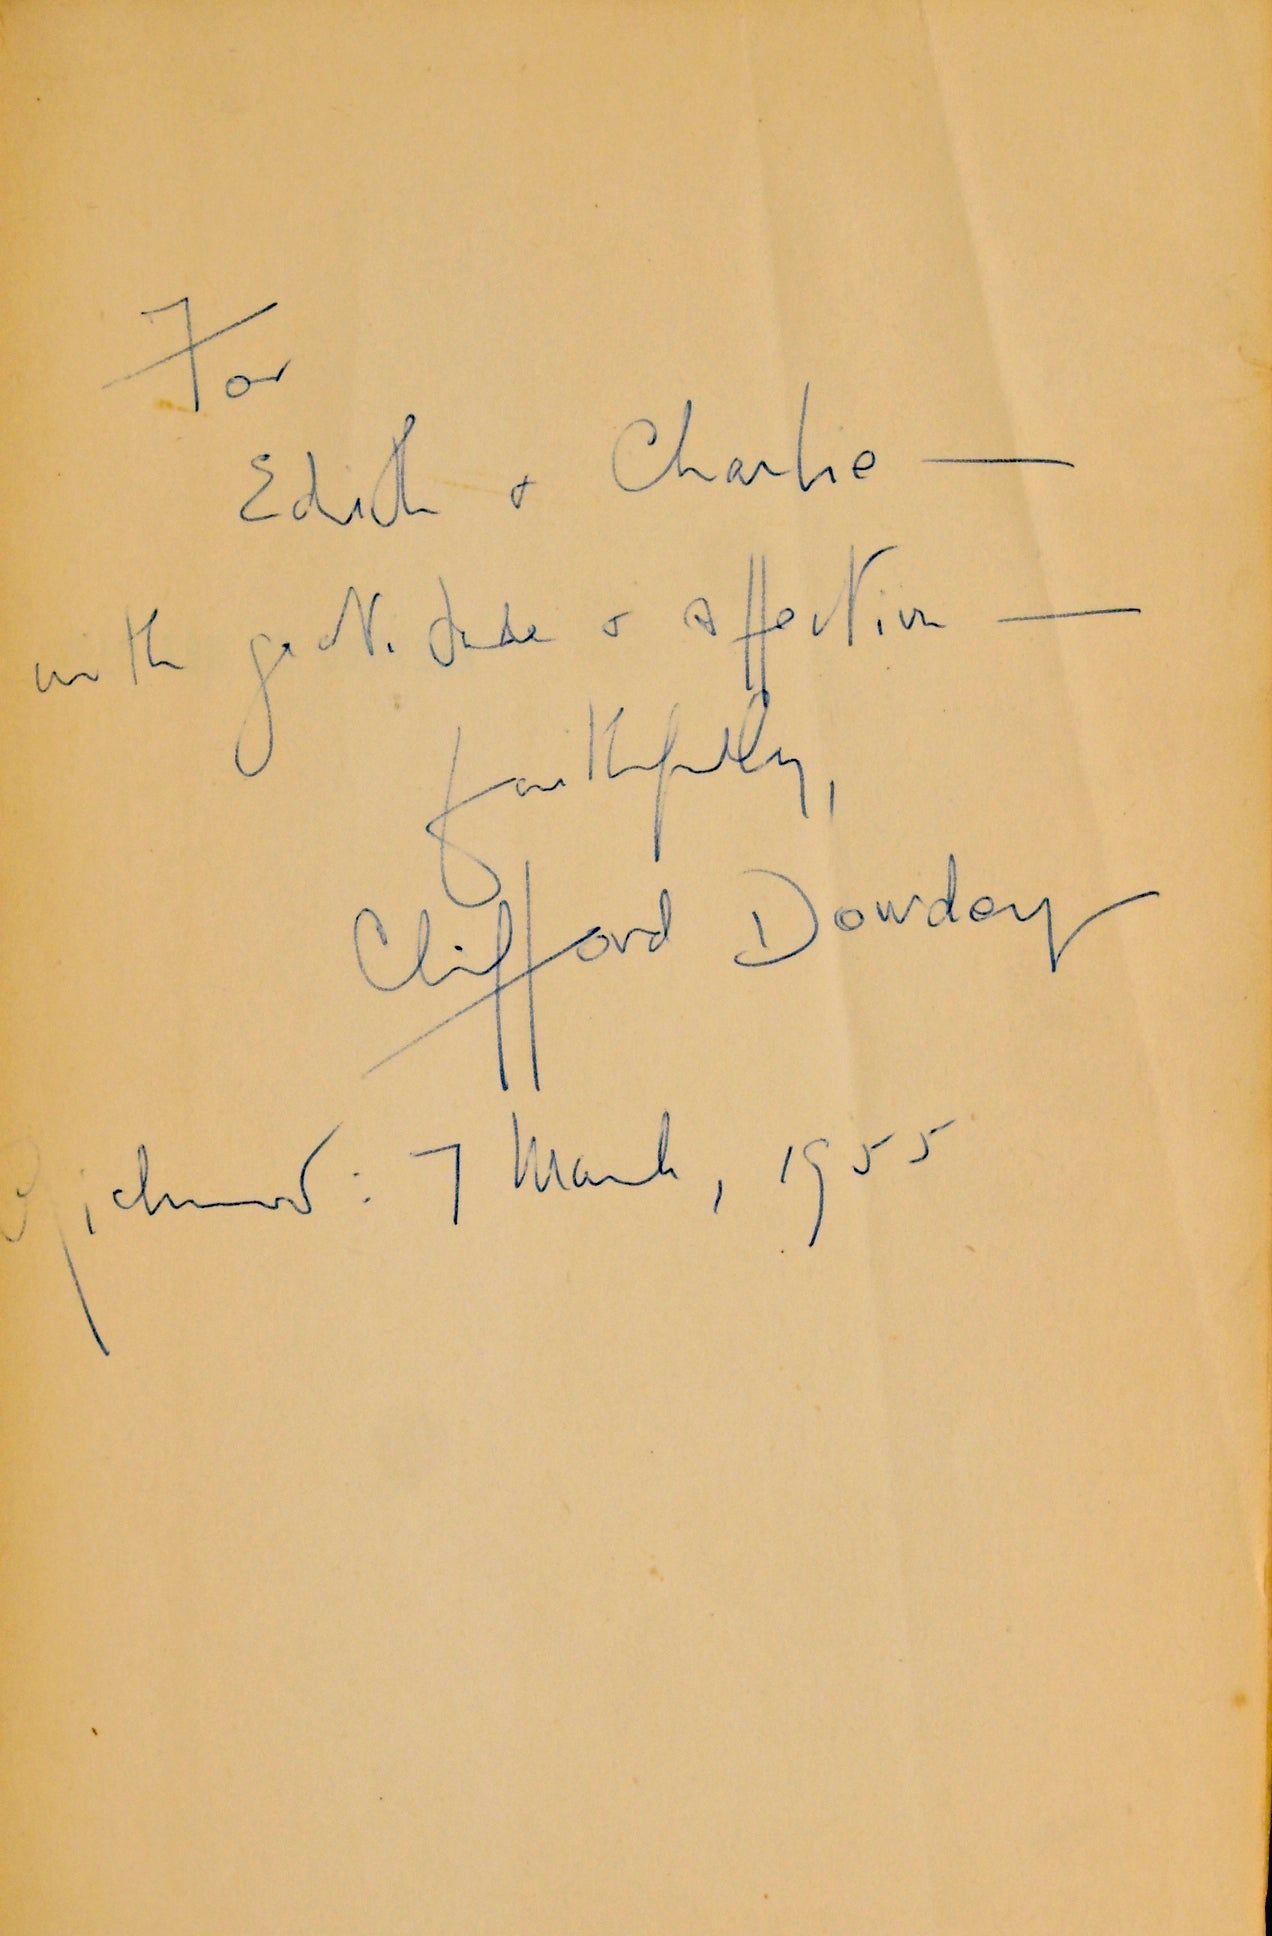 For
Edith & Charlie —
with gratitude & affection —
faithfully,
Clifford Dowdey
Richmond: 7 March, 1955